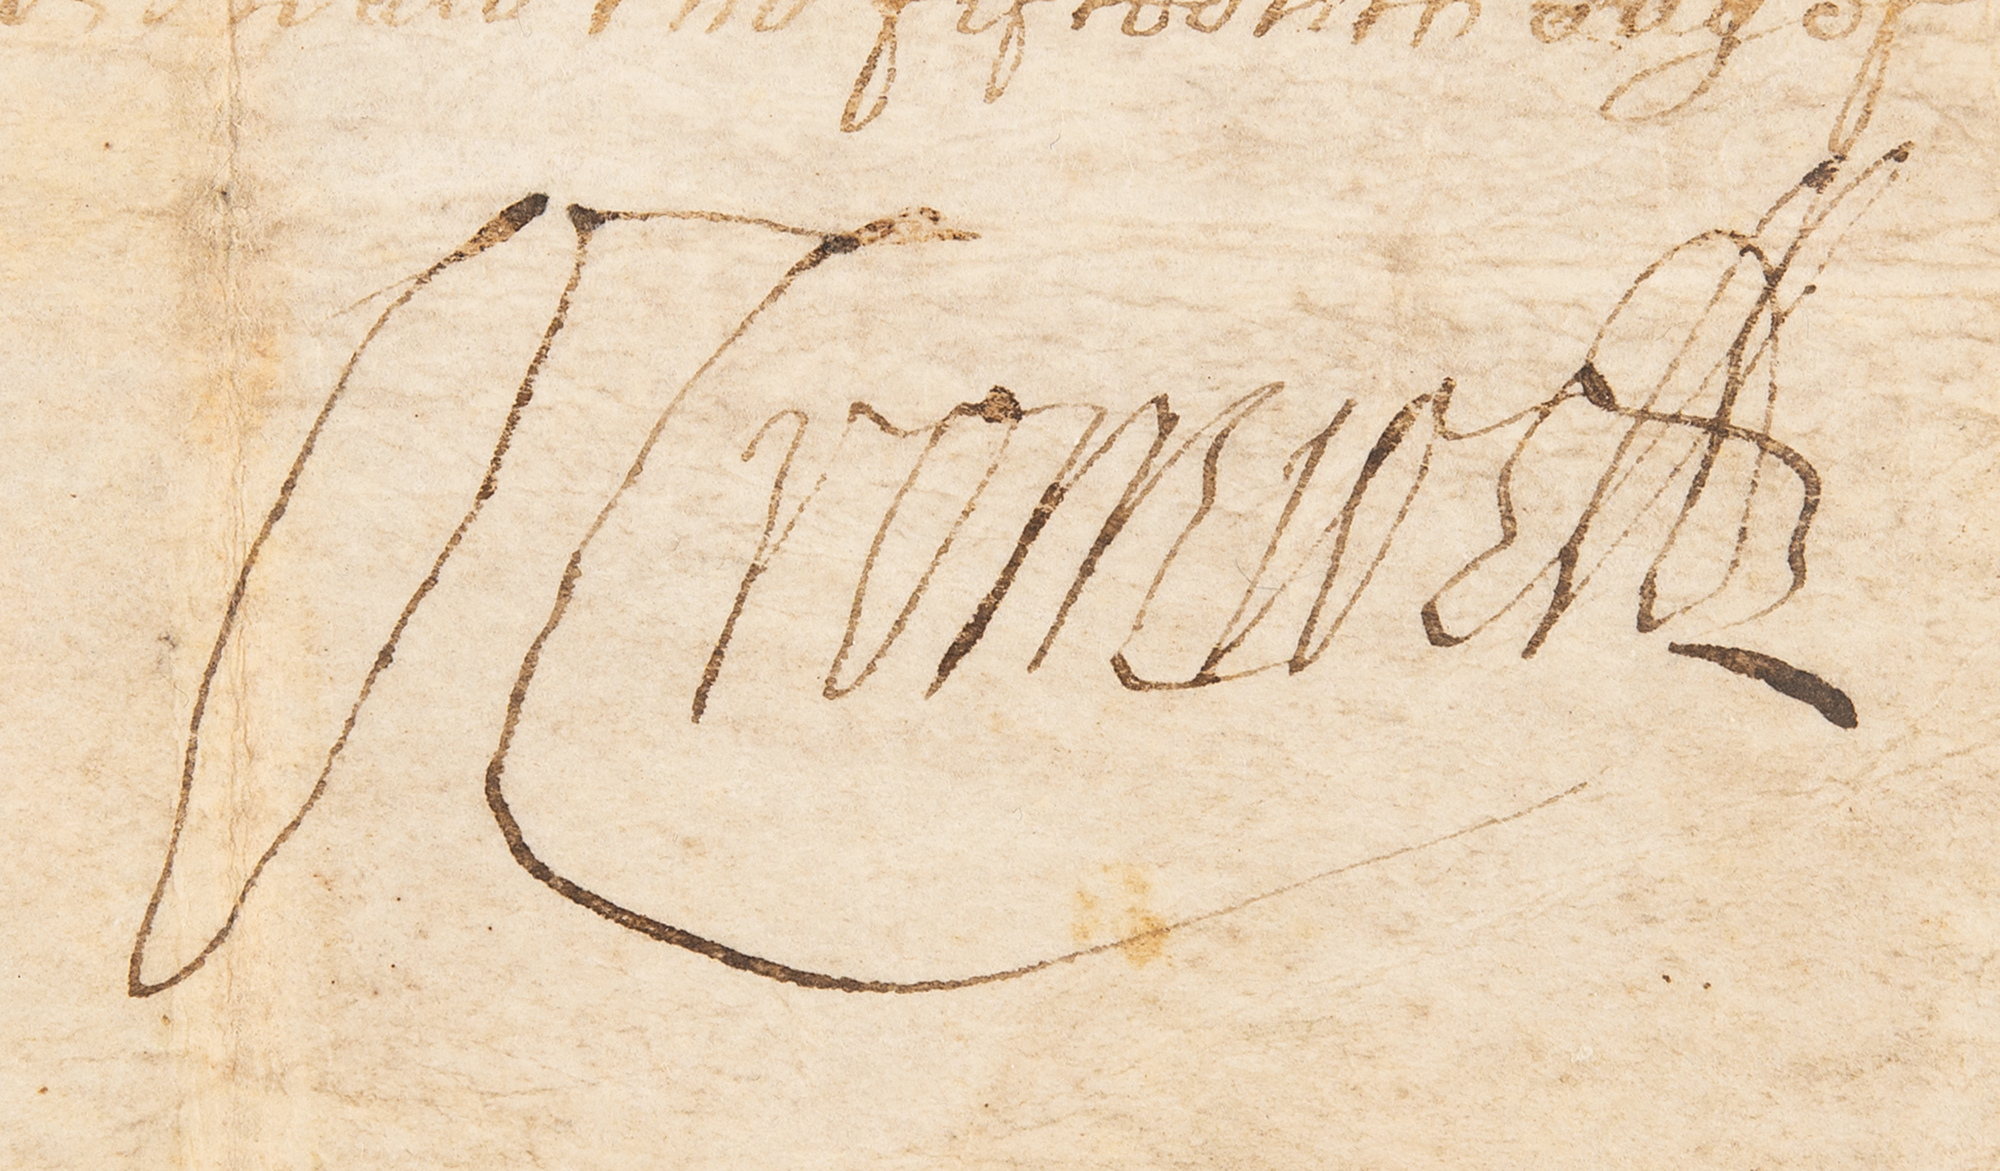 the fifteenth day of
Cromwell